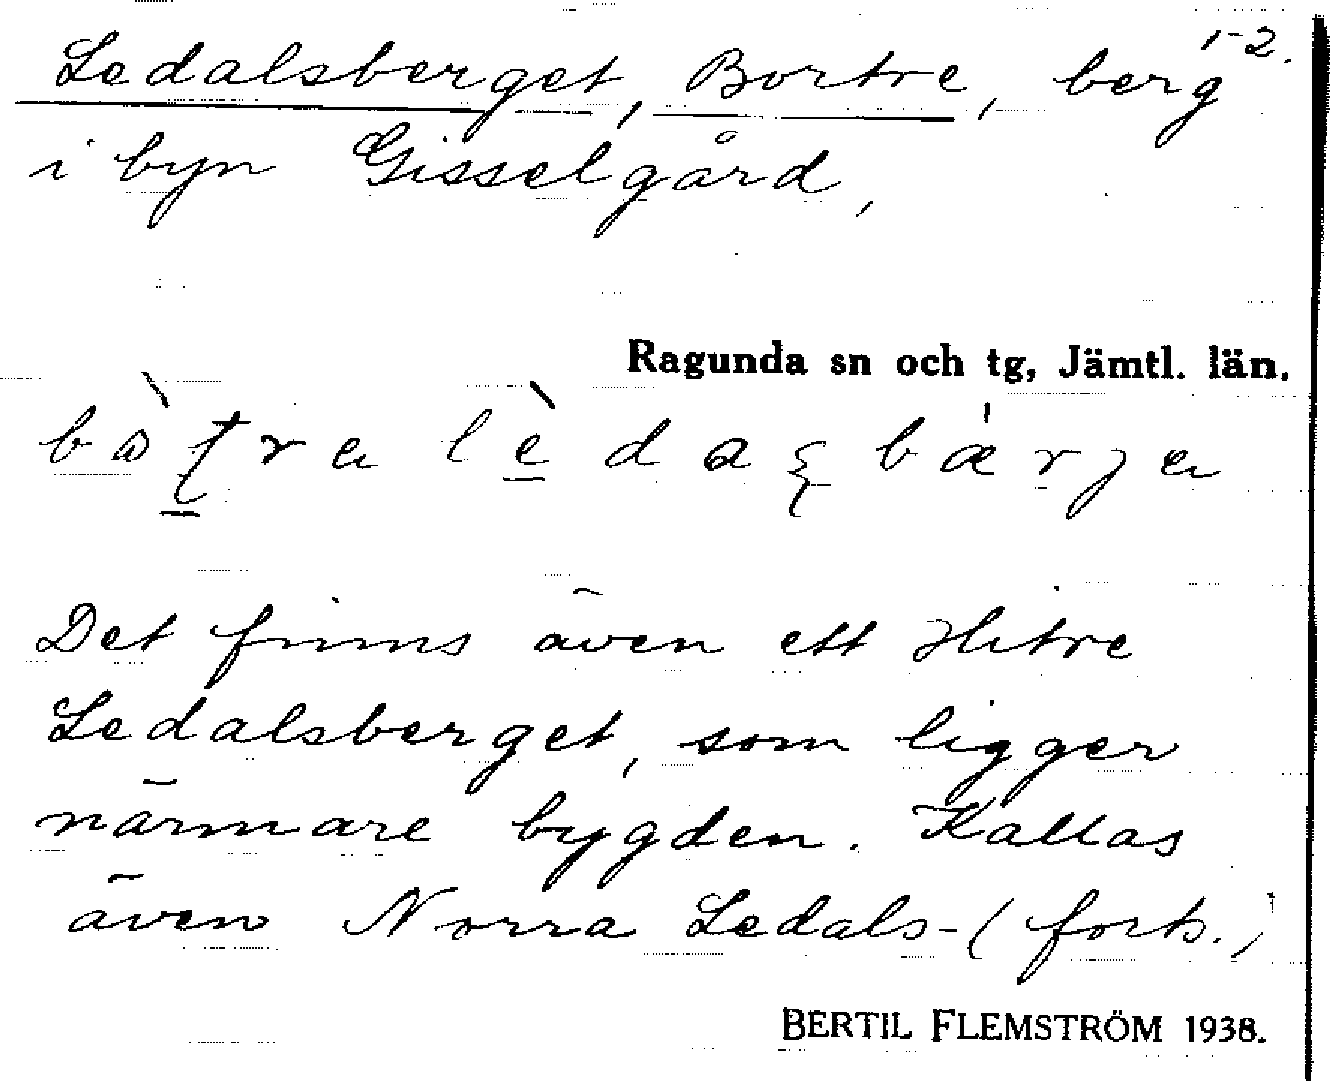 1-2.
Ledalsberget, Bortre, berg
i byn Gisselgård,
Ragunda sn och tg, Jämtl. län.
Det finns även ett Hitre
Ledalsberget, som ligger
närmare bygden. Kallas
även Norra Ledals- (forts.)
BERTIL FLEMSTRÖM 1938.